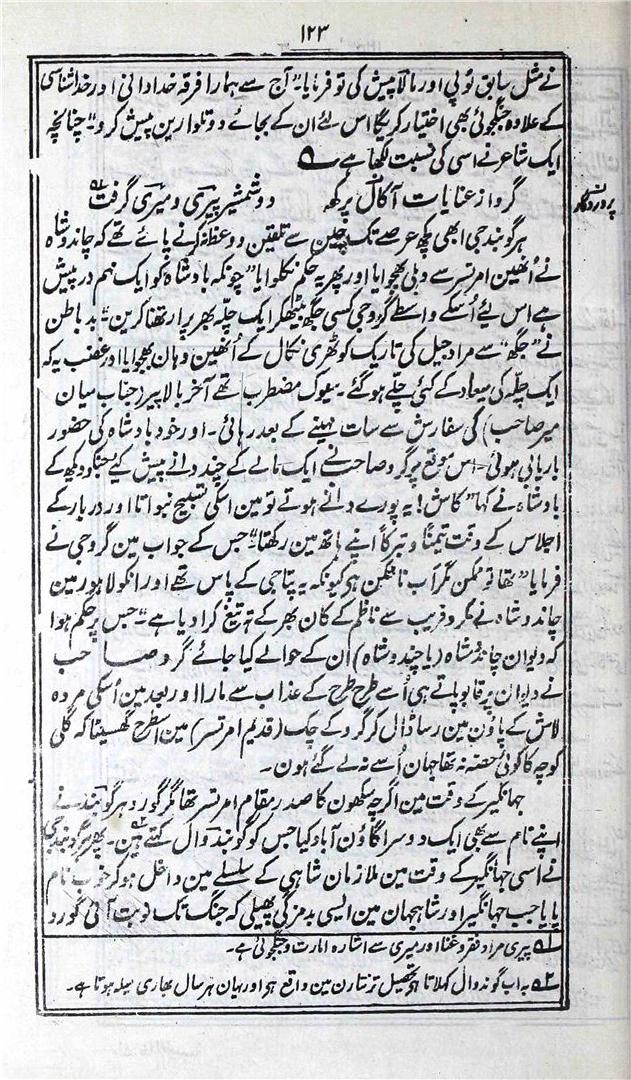 ۱۲۳
نے مثل سابق ٹوپی اور مالا پیش کی تو فرمایا "آج سے ہمارا فرقہ خدادانی اور خداشناسی
کے علاوہ جنگجوئی بھی اختیار کریگا اس لئے ان کے بجائے دو تلوارین پیش کرو"۔ چنانچہ
ایک شاعر نے اسی کی نسبت لکھا ہے ؎
گرو از عنایات آکال پرکھ دو شمشیر پیری و میری گرفت ۱؎
ہرگوبند جی ابھی کچھ عرصے تک چین سے تلقین و وعظ نہ کرنے پائے تھے کہ چاندوشاہ
نے اُنھین امرتسر سے دہلی بھجوایا اور پھر یہ حکم نکلوایا "چونکہ بادشاہ کو ایک مہم درپیش
ہے اس لیے اُسکے واسطے گروجی کسی جگھ بیٹھکر ایک چلّہ بھر پرارتھنا کرین"۔ بد باطن
نے "جگھ" سے مراد جیل کی تاریک کوٹھری نکال کے اُنھین وہان بھجوایا اور غضب یہ کہ
ایک چلّہ کی میعاد کے کئی چلّے ہوگئے۔ سیوک مضطرب تھے آخر بالا پیر (جناب میان
میر صاحب) کی سفارش سے سات مہینے کے بعد رہائی۔ اور خود بادشاہ کی حضور
باریابی ہوئی۔ اس موقع پر گرو صاحب نے ایک مالے کے چند دانے پیش کیے جنکو دیکھ کے
بادشاہ نے کہا "کاش! یہ پورے دانے ہوتے تو مین اسکی تسبیح بنواتا اور دربار کے
اجلاس کے وقت تیمّناً و تبرکاً اپنے ہاتھ مین رکھتا"۔ جس کے جواب مین گروجی نے
فرمایا "تھا تو ممکن مگر اب ناممکن ہی کیونکہ یہ پتاجی کے پاس تھے اور انکو لاہور مین
چاندوشاہ نے مکر و فریب سے ناظم کے کان بھر کے تہ تیغ کرادیا ہے"۔ جس پر حکم ہوا
کہ دیوان چاندوشاہ (یا چندوشاہ) ان کے حوالے کیا جائے گرو صاحب
نے دیوان پر قابو پاتے ہی اُسے طرح طرح کے عذاب سے مارا اور بعد مین اُسکی مردہ
لاش کے پاؤن مین رسا ڈال کر گرو کے چک (قدیم امرتسر) مین اسطرح گھسیٹا کہ گلی
کوچہ کا کوئی حصّہ نہ تھا جہان اُسے نہ لے گئے ہون۔
جہانگیر کے وقت مین اگرچہ سکھون کا صدر مقام امرتسر تھا مگر گورو ہرگوبند نے
اپنے نام سے بھی ایک دوسرا گاؤن آباد کیا جس کو گوبندوال کہتے ہین ۲؎۔ پھر ہرگوبند جی
نے اسی جہانگیر کے وقت مین ملازمان شاہی کے سلسلے مین داخل ہوکر خوب نام
پایا جب جہانگیر اور شاہجہان مین ایسی بدمزگی پھیلی کہ جنگ تک نوبت آئی گورو
۱؎ پیری مراد فقر و غنا اور میری سے اشارہ امارت و جنگجوئی ہے۔
۲؎ یہ اب گوندوال کہلاتا ہو تحصیل ترنتارن مین واقع ہو اور یہان ہر سال بھاری میلہ ہوتا ہے۔